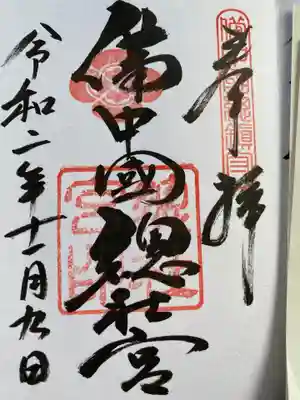 奉拝
備中國總社宮
令和二年十一月九日